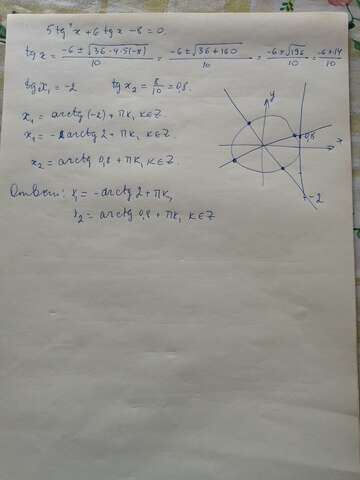 5 tg²x + 6 tg x - 8 = 0
tg x = (-6 ± √(36 - 4·5(-8)))/10 = (-6 ± √(36 + 160))/10 = (-6 ± √196)/10 = (-6 ± 14)/10
tg x₁ = -2    tg x₂ = 8/10 = 0,8.
x₁ = arctg(-2) + πk, k∈Z.
x₁ = -arctg 2 + πk, k∈Z.
x₂ = arctg 0,8 + πk, k∈Z.
Ответ: x₁ = -arctg 2 + πk,
x₂ = arctg 0,8 + πk, k∈Z
y
0,8
x
-2